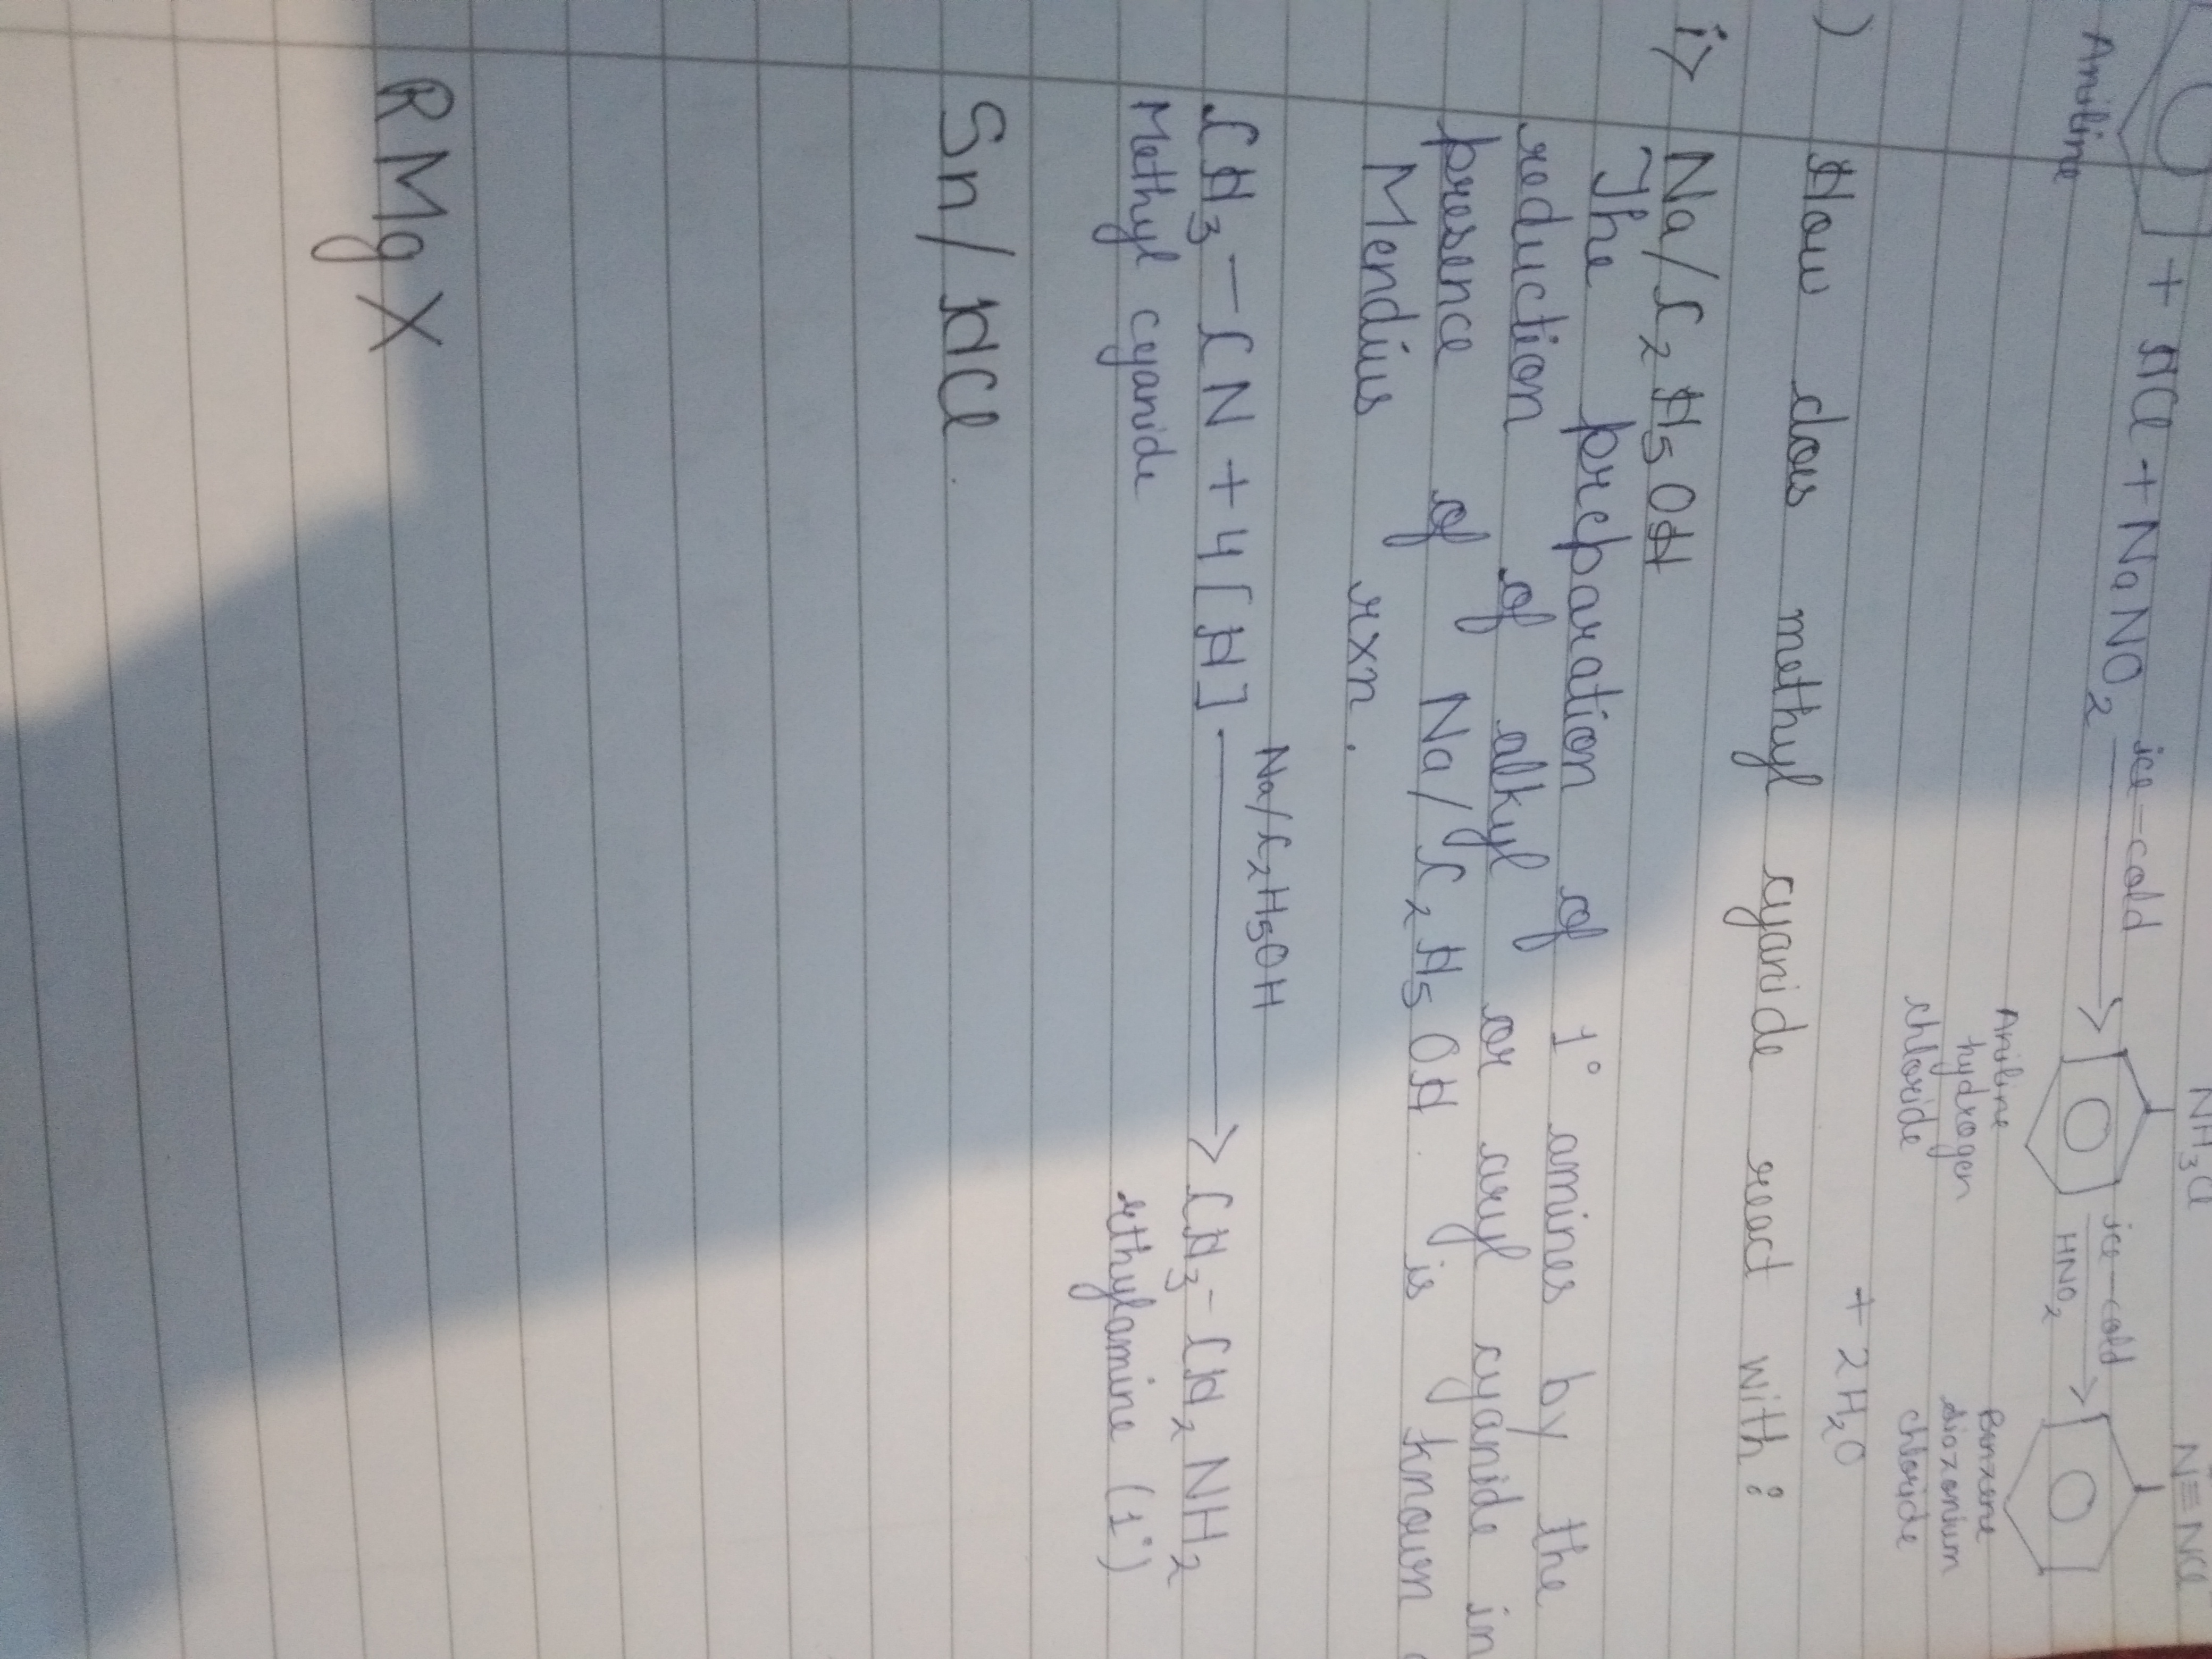 NH3Cl N≡NCl
+ HCl + NaNO2 ice-cold ice-cold
HNO2
Aniline
Aniline hydrogen chloride
Benzene diazonium chloride
+ 2H2O
) How does methyl cyanide react with:
i> Na/C2H5OH
The preparation of 1° amines by the
reduction of alkyl or aryl cyanide in
presence of Na/C2H5OH is known
Mendius rxn.
Na/C2H5OH
CH3-CN + 4[H] → CH3-CH2NH2
Methyl cyanide ethylamine (1°)
Sn/HCl.
RMgX